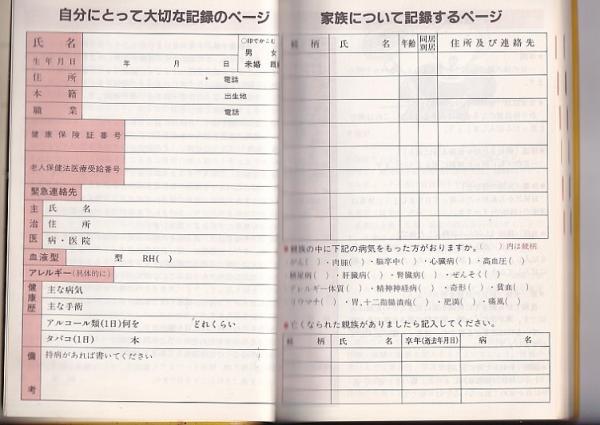 自分にとって大切な記録のページ
氏 名
○印でかこむ
男 女
未婚 既
生年月日 年 月 日
住 所 電話
本 籍 出生地
職 業 電話
健康保険証番号
老人保健法医療受給番号
緊急連絡先
主治医
氏 名
住 所
病・医院
血液型 型 RH( )
アレルギー(具体的に)
健康歴
主な病気
主な手術
アルコール類(1日)何を どれくらい
タバコ(1日) 本
備考
持病があれば書いてください
家族について記録するページ
続 柄 氏 名 年齢 同居別居 住所及び連絡先
●親族の中に下記の病気をもった方がおりますか。( )内は続柄
がん( )・肉腫( )・脳卒中( )・心臓病( )・高血圧( )
糖尿病( )・肝臓病( )・腎臓病( )・ぜんそく( )
アレルギー体質( )・精神神経病( )・奇形( )・貧血( )
リウマチ( )・胃,十二指腸潰瘍( )・肥満( )・痛風( )
●亡くなられた親族がありましたら記入してください。
続 柄 氏 名 享年(逝去年月日) 病 名